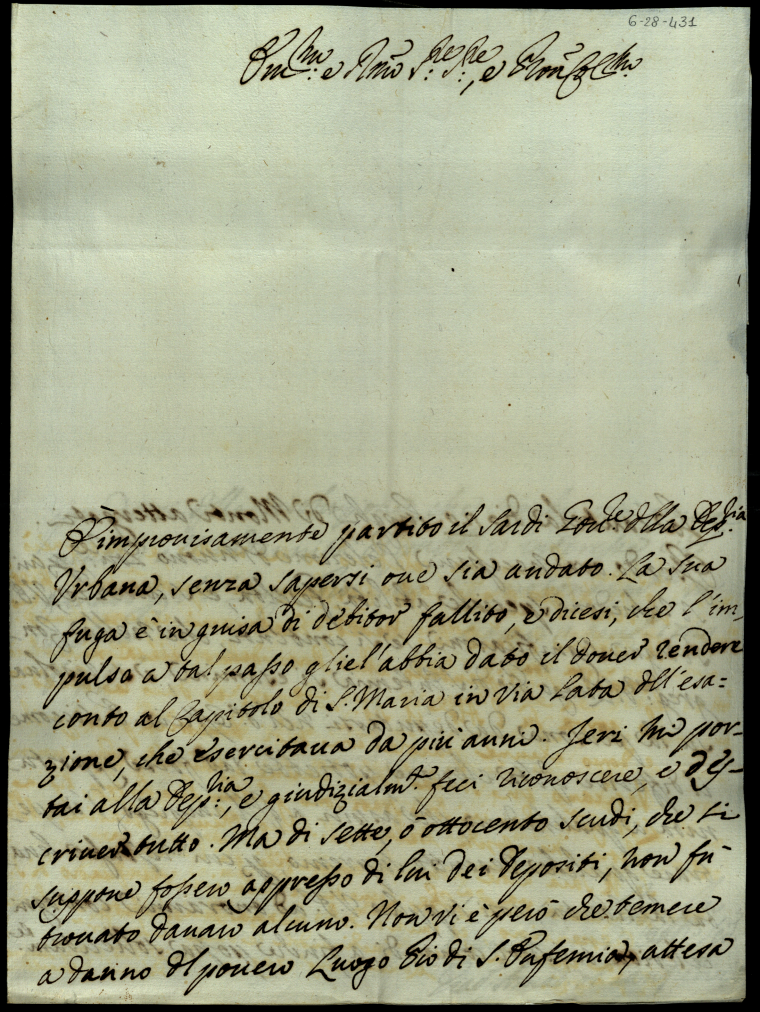 6-28-431
Em:mo e Rmo S:re S:re, e Pron Col:mo
È improvisamente partito il Sardi Esec:re della Dep:ria
Urbana, senza sapersi ove sia andato. La sua
fuga è in guisa di debitor fallito, e dicesi, che l'im,
pulso a tal passo gliel'abbia dato il dover rendere
conto al Capitolo di S. Maria in Via Lata dell'esa=
zione, che esercitava da più anni. Jeri mi por-
tai alla Dep:ria, e giudizialmte. feci riconoscere, e des-
criver tutto. Ma di sette, ò ottocento scudi, che si
suppone fossero appresso di lui dei depositi, non fù
trovato danaro alcuno. Non vi è però che temere
a danno del povero Luogo Pio di S. Eufemia, attesa